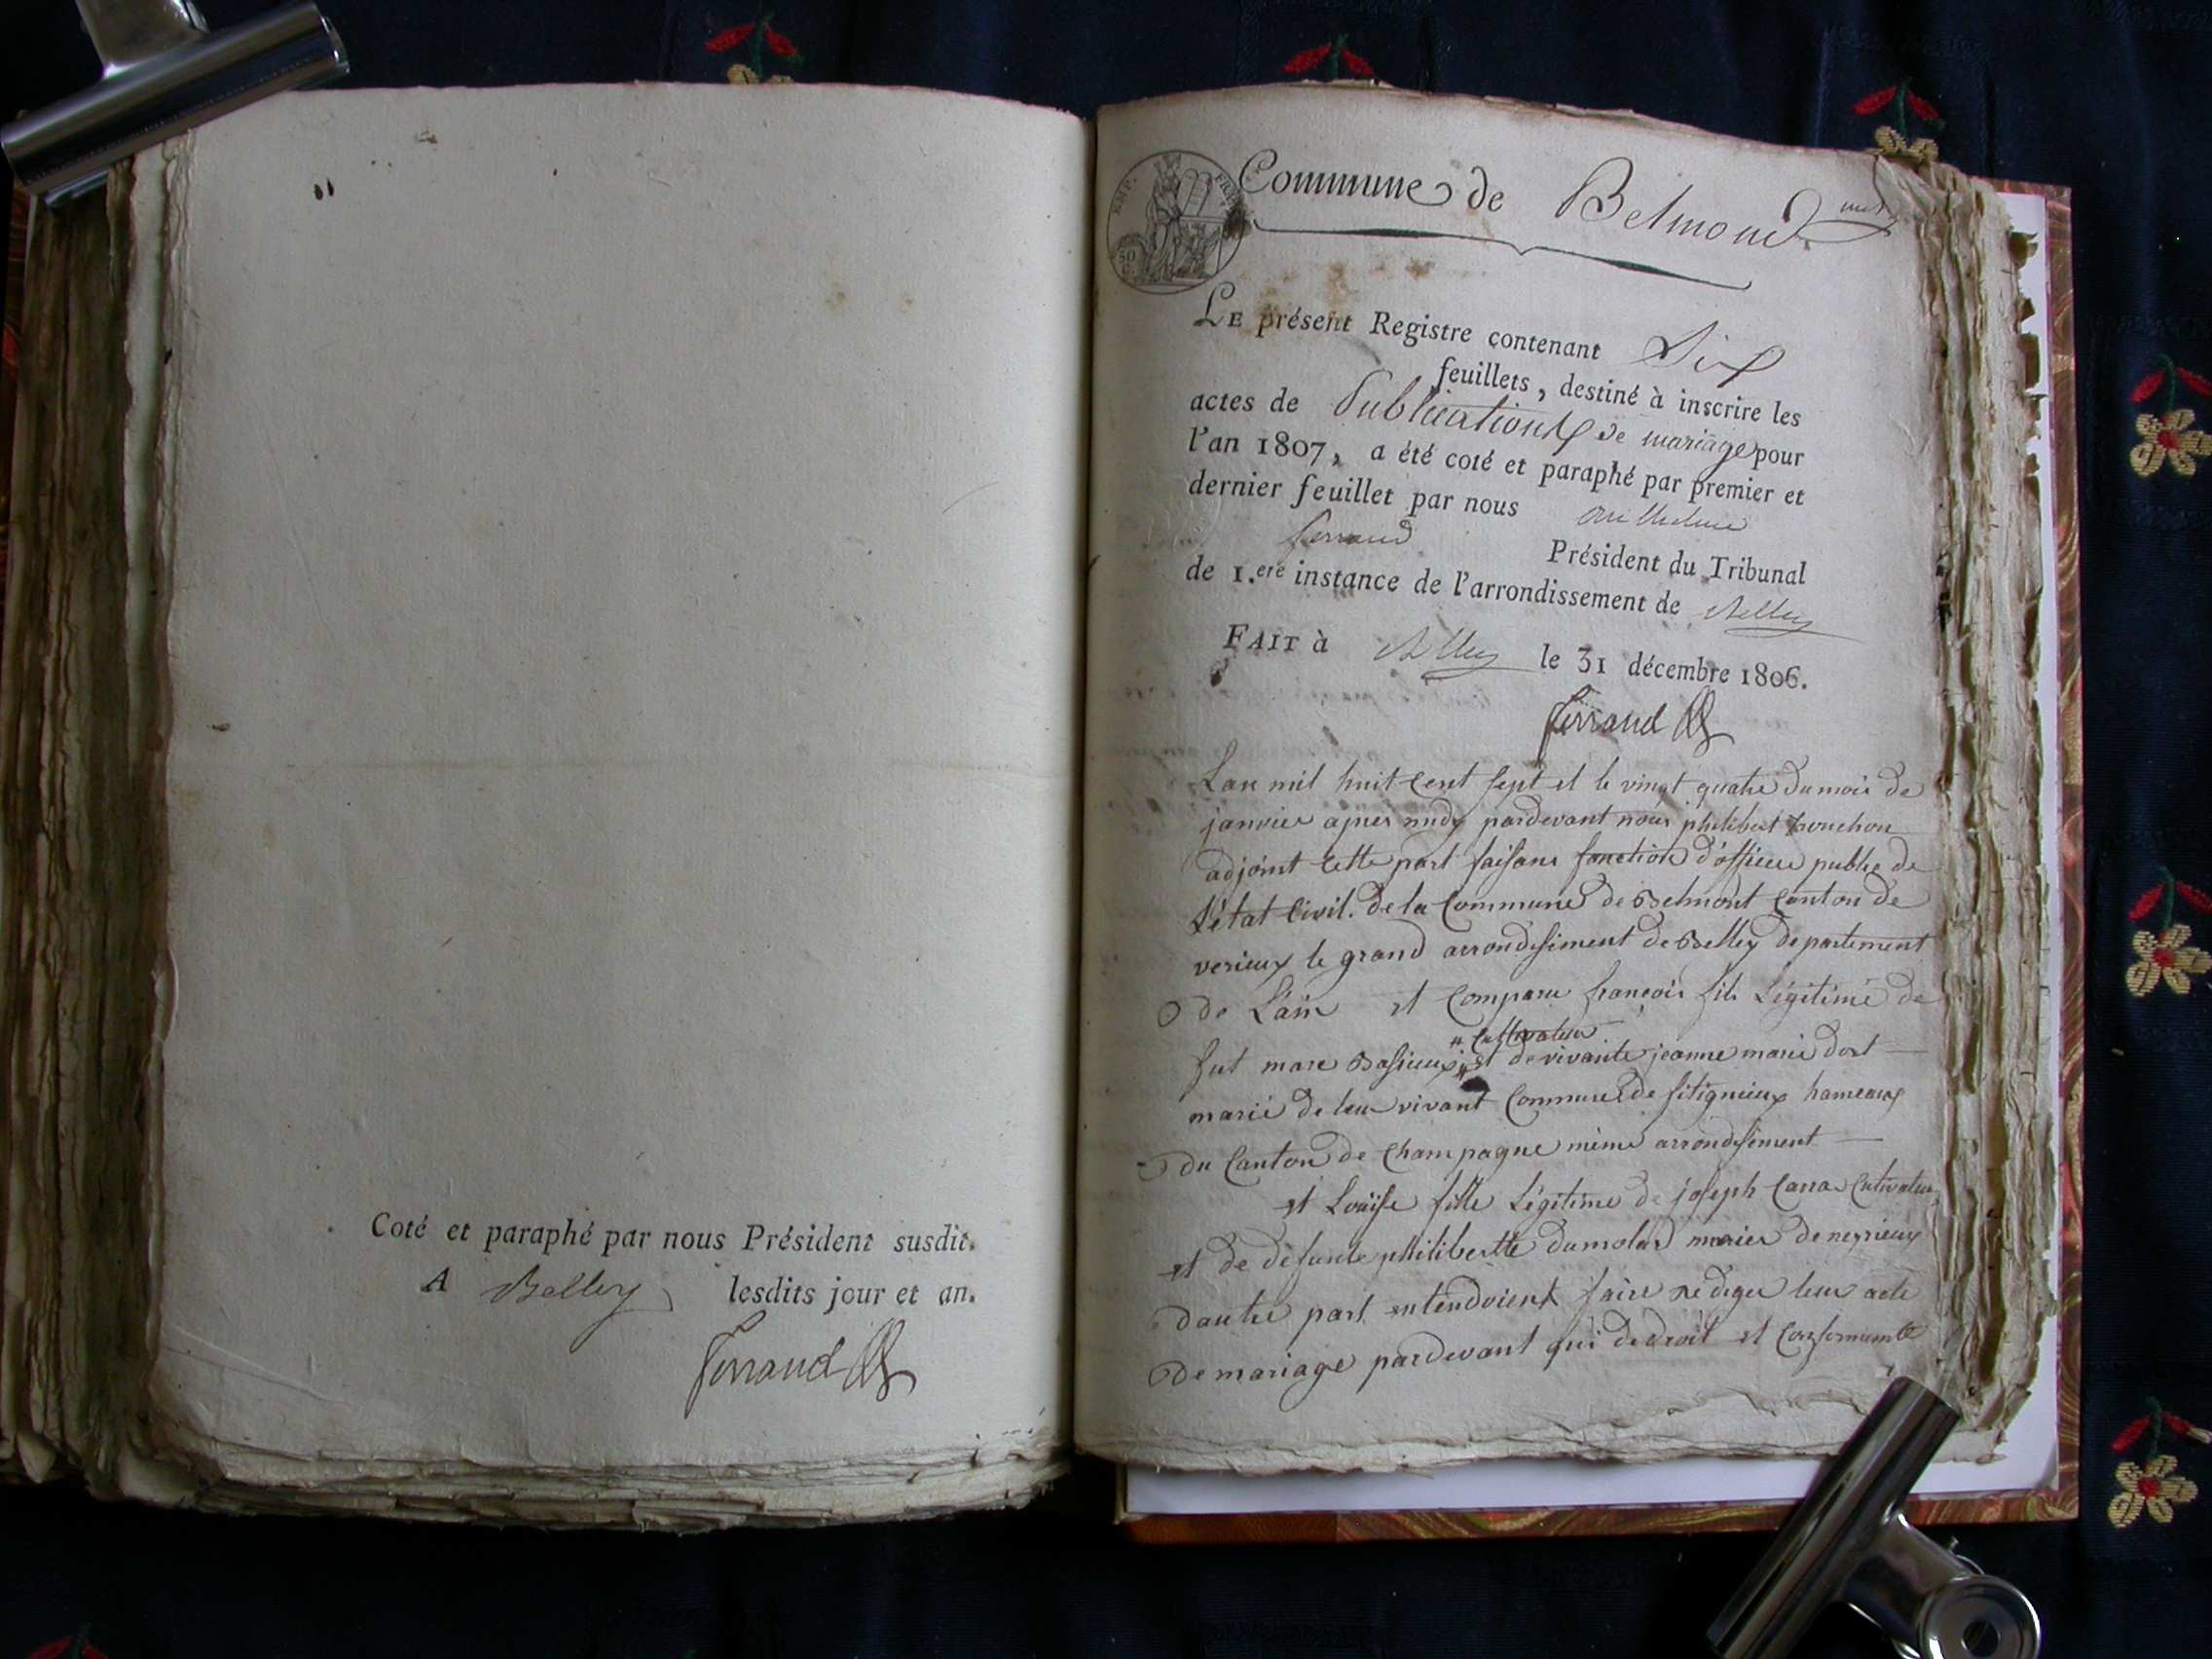 Coté et paraphé par nous Président susdit.
A Belley lesdits jour et an.
Ferraud
EMP. FRAN
50
Commune de Belmond
LE présent Registre contenant Six
feuillets, destiné à inscrire les
actes de Publications de mariage pour
l'an 1807, a été coté et paraphé par premier et
dernier feuillet par nous
ferraud Président du Tribunal
de 1.ere instance de l'arrondissement de Belley
FAIT à Belley le 31 décembre 1806.
Ferraud
Lan mil huit cent sept et le vingt quatre du mois de
janvier apres midy pardevant nous philibert
adjoint cette part faisant fonction d'officier public de
L'état Civil. de la Commune de Belmont Canton de
verieux le grand arrondisiment de Belley departement
de L'ain et Comparu françois fils Légitime de
fut marc et de vivante jeanne marie
" Cultivateur
marié de leur vivant Commune de fitignieux hameaux
du Canton de Champagne même arrondisiment
et Louise fille Légitime de joseph Cultivateur
et de défunte philiberte dumolard mariés
dautre part entendoient faire rediger leur acte
de mariage pardevant qui de droit et Conformemt